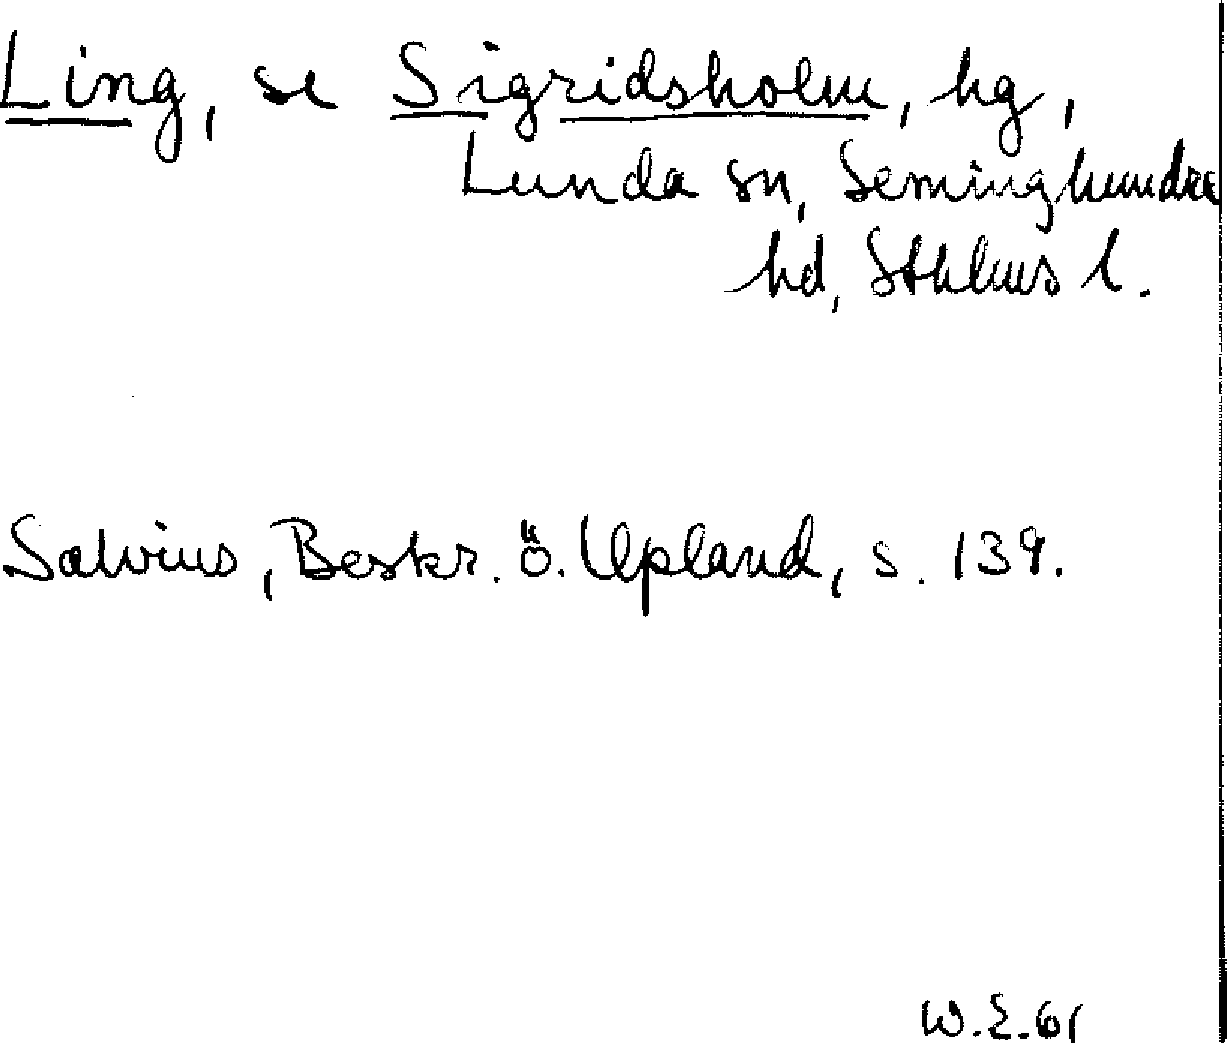 Ling, se Sigridsholm, hg,
Lunda sn, Seminghundra
hd, Sthlms l.
Salvius, Beskr. ö. Upland, s. 139.
W.E. 61